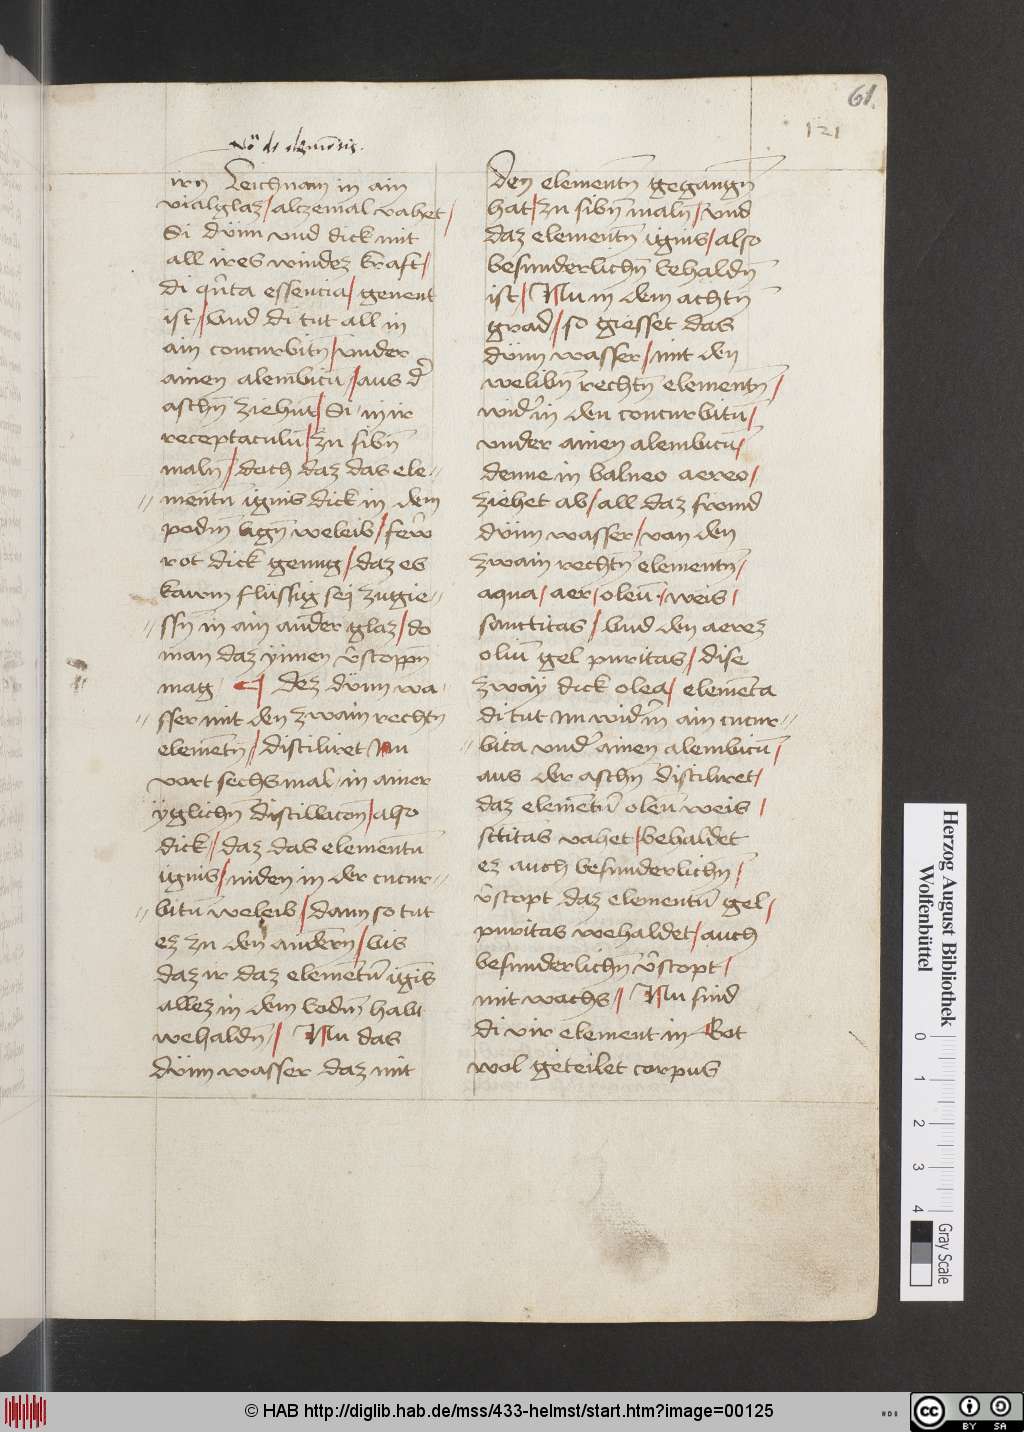 61.
121
irn Leichnam in ain
vialglaz / alczemal vahet /
Si dünn vnd dick mit
all ires windez kraft /
di qu̅ta essencia / genent
ist / Vnd di tut all in
ain concurbitn / vnder
ainen alembicu̅ / aus d̓
aschn̅ ziehnt / Si in ir
receptaculu̅ / zu sibn̅
maln̅ / doch daz das ele〃
〃 mentu̅ ignis dick in dem
podm̅ lign̅ weleib / ferw̅
rot dick genug / daz es
kawm flüssig sej zugie〃
〃 ssn̅ in ain ander glaz / do
man daz ynnen v̓stoppn̅
mag ¶ Dez dünn wa〃
〃 sser mit den zwain rechtn
eleme̅tn̅ / distiliret Nu
vort sechs mal / in ainer
ÿglichn̅ distillacon̅ / also
dick / daz das elementu̅
ignis / niden in der cucur〃
〃 bitu̅ weleib / dann so tut
ez zu den andern̅ / bis
daz ir daz eleme̅tu̅ ignis
allez in dem bodm̅ habt
wehaldn̅ / Nu das
dünn wasser daz mit
den elementn̅ gegangn̅
hat / zu sibn̅ maln̅ / vnd
daz elementn̅ ignis / also
besunderlichn̅ behaldn̅
ist / Nu in dem achtn̅
grad / so giesset das
dünn wasser / mit den
welibn̅ rechtn̅ elementn̅ /
wid̓ in den concurbitu̅ /
vnder ainen alembicu̅ /
denne in balneo aereo /
ziehet ab / all daz fromd
dünn wasser / von den
zwain rechtn̅ elementn̅ /
aqua / aer / oleu̅ / weis /
sanctitas / Vnd den aerez
oliu̅ gel puritas / dise
zway dick olea / elementa
di tut nu wid̓ in ain cucur〃
〃 bita vnd̓ ainen alembicu̅ /
aus der aschn̅ distiliret /
daz eleme̅tu̅ oleu̅ weis /
sctitas vahet / behaldet
ez auch besunderlichn̅ /
v̓stopt daz elementu̅ gel /
puritas wehaldet / auch
besunderlichn̅ v̓stopt /
mit wachs / Nu sind
di vir element in Got
wol geteilet corpus
Herzog August Bibliothek
Wolfenbüttel
0 1 2 3 4
Gray Scale
© HAB http://diglib.hab.de/mss/433-helmst/start.htm?image=00125
cc BY SA